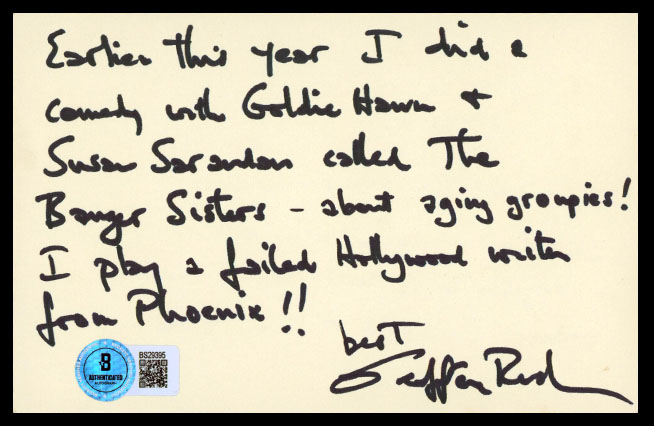 Earlier this year I did a
comedy with Goldie Hawn +
Susan Sarandon called The
Banger Sisters - about aging groupies!
I play a failed Hollywood writer
from Phoenix!!
best
Geoffrey Rush
BS29395
B
AUTHENTICATED